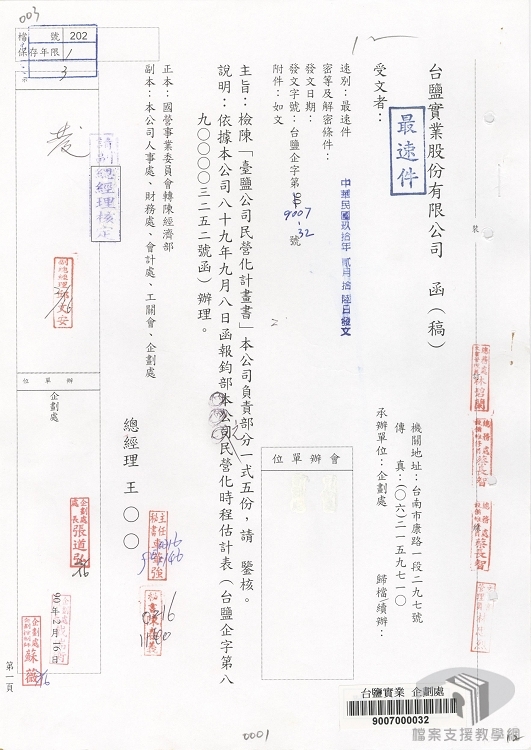 003
檔號 202
保存年限 1
3
台鹽實業股份有限公司　函（稿）
最速件
機關地址：台南市健康路一段二九七號
傳　真：（〇六）二一五九七一〇
承辦單位：企劃處　歸檔續辦：
受文者：
速別：最速件
密等及解密條件：
發文日期：
中華民國玖拾年貳月拾陸日發文
發文字號：台鹽企字第 9007 - 32 號
附件：如文
會辦單位
主旨：檢陳「臺鹽公司民營化計畫書」本公司負責部分一式五份，請　鑒核。
說明：依據本公司八十九年九月八日函報鈞部本公司民營化時程估計表（台鹽企字第八
九〇〇〇〇三二五二號函）辦理。
正本：國營事業委員會轉陳經濟部
副本：本公司人事處、財務處、會計處、工關會、企劃處
總經理　王〇〇
請副總經理核定
單辦位單
企劃處
企劃處處長 張道
90年2月16日
企劃處 蘇薇
主任秘書
0216
1140
裝
第一頁
0001
台鹽實業 企劃處
9007000032
檔案支援教學網